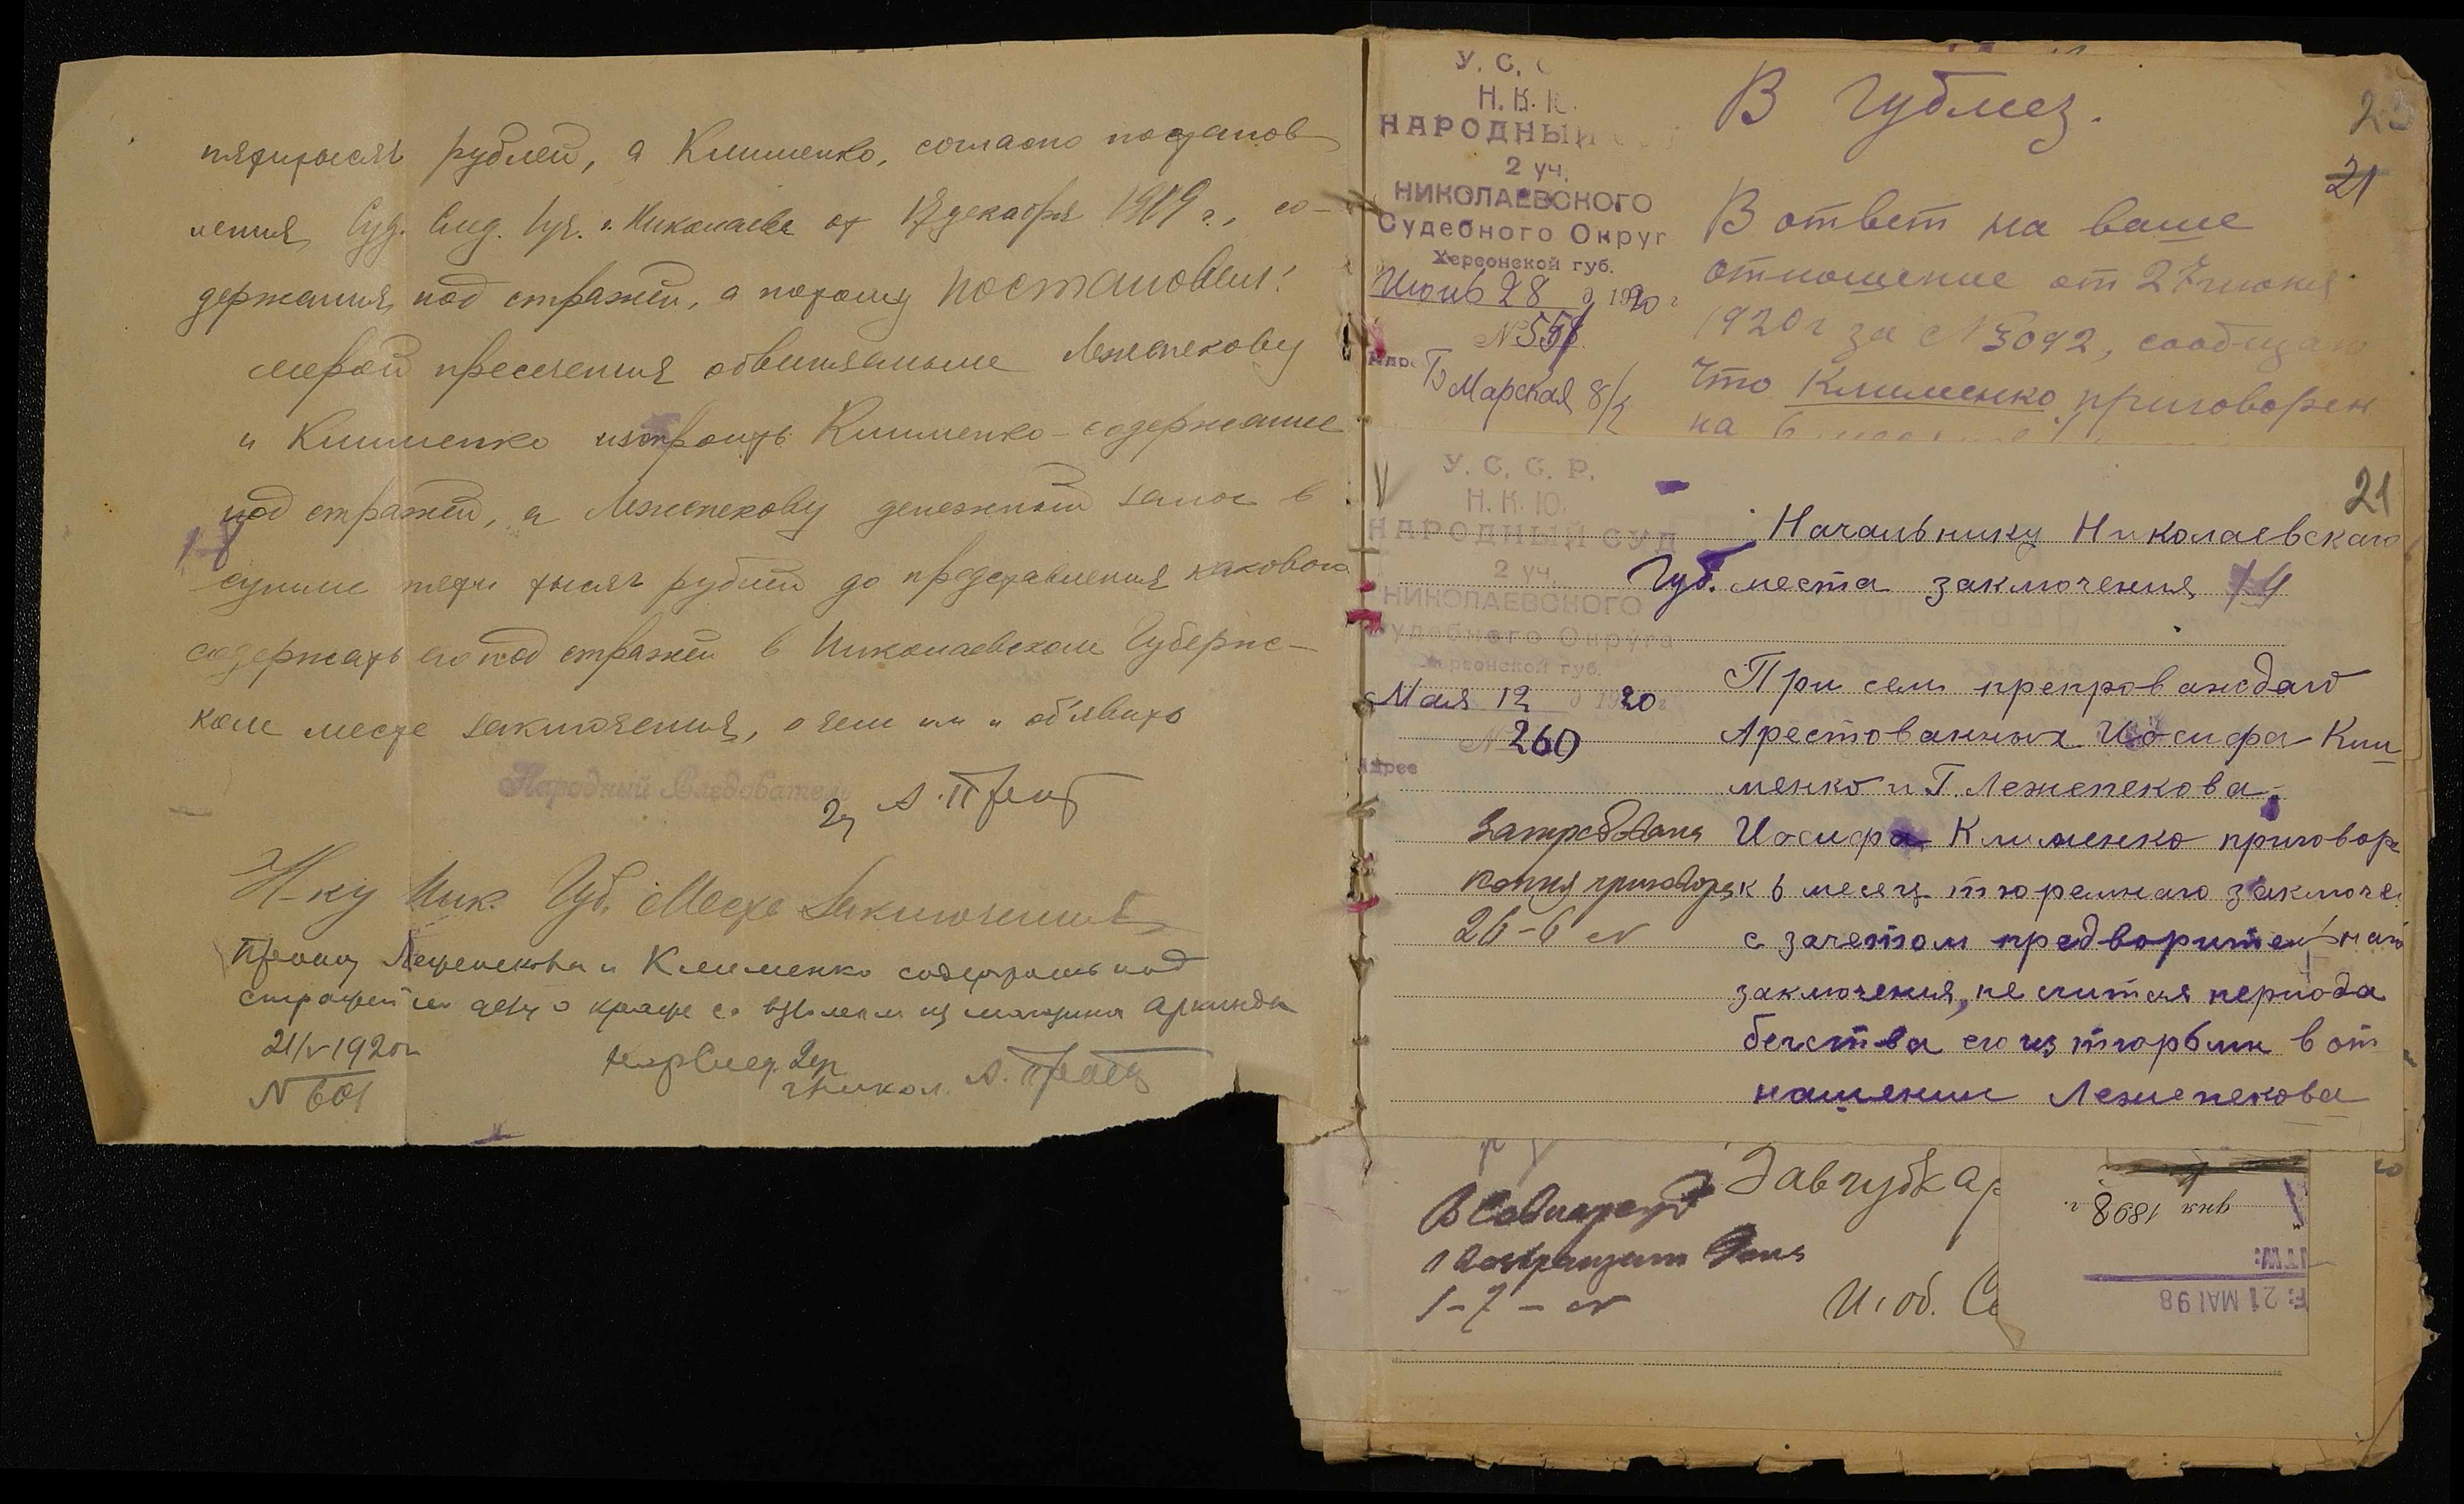 пятитысяч рублей, а Клименко, согласно постанов
ления Суд. След. 1 уч. г. Николаева от 13 декабря 1919 г., со-
держания под стражей, а потому постановил:
мерой пресечения обвиняемыме Лежепекову
и Клименко избрать Клименко - содержание
под стражей, а Лежепекову денежный залог в
сумме пяти тысяч рублей до представления какового
содержать его под стражей в Николаевском Губернс-
ком месте заключения, о чем им и об'явить
Народный Следователь
Н-ку Ник. Губ. Места Заключения
Прошу Лежепекова и Клименко содержать под
стражей по делу о краже со взломом из магазина
21/V 1920 г
N 601
НарСлед. 2 уч.
г. Никол.
В Губмез.
23
21
У. С. С
Н. К. Ю.
НАРОДНЫЙ
2 уч.
НИКОЛАЕВСКОГО
Судебного Округ
Херсонской губ.
Июнь 28 д 1920 г
№ 558
Адре
Б Марская 8/2
В ответ на ваше
отношение от 27 июня
1920 г за № 3092, сообщаю
что Клименко приговорен
на 6
21
У. С. С. Р.
Н. К. Ю.
НАРОДНЫЙ СУД
2 уч.
НИКОЛАЕВСКОГО
Судебного Округа
Херсонской губ.
Мая 12 д 1920 г
№ 260
Адрес
Затребована
копия приговора
26-6
Начальнику Николаевскаго
Губ. места заключения
При сем препровождаю
Арестованных Иосифа Кли
менко и Г. Лежепекова.
Иосифа Клименко приговор
к 6 месяц тюремнаго заключе
с зачетом предворительнаго
заключения, не считая периода
бегства его из тюрьмы в от
нашении Лежепекова
Завгубкар
1-7-
И. об. Се
дня 1898 г.
F: 21 MAI 98